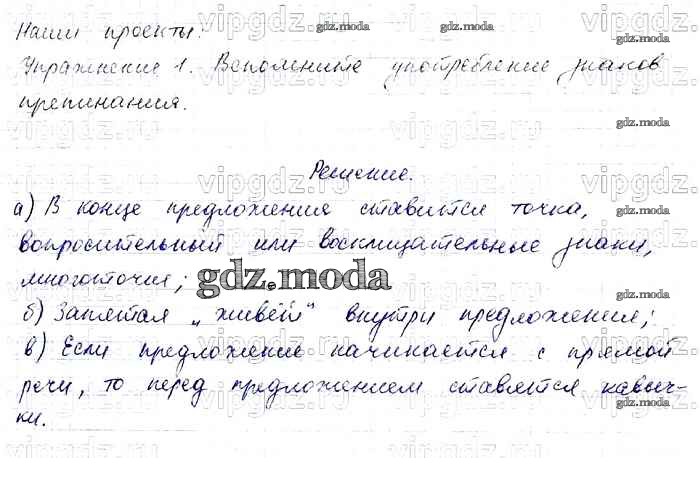 Наши проекты:
Упражнение 1. Вспомните употребление знаков
препинания.
Решение.
а) В конце предложения ставится точка,
вопросительный или восклицательные знаки,
многоточия;
б) Запятая „живёт" внутри предложения;
в) Если предложение начинается с прямой
речи, то перед предложением ставятся кавыч-
ки.
gdz.moda
vipgdz.ru